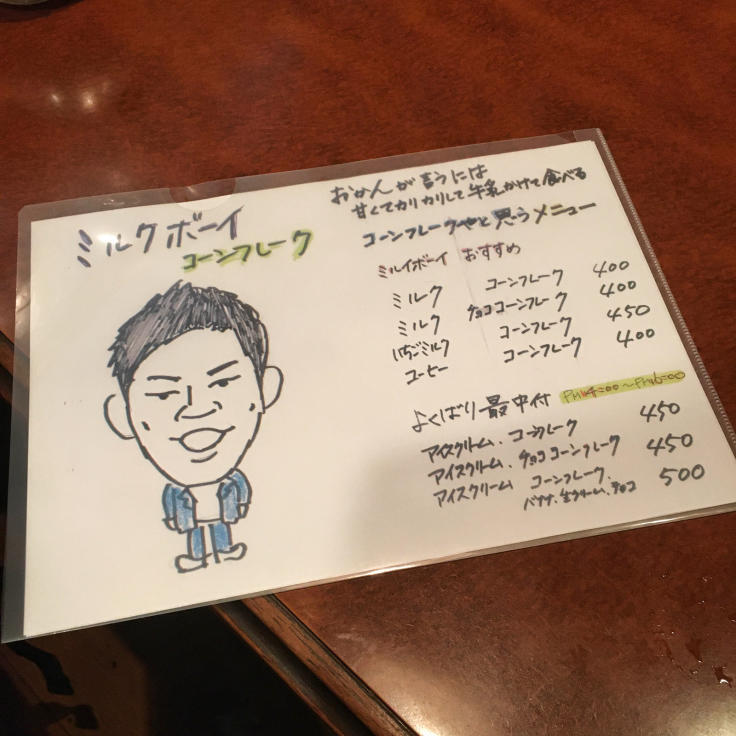 ミルクボーイ
コーンフレーク
おかんが言うには
甘くてカリカリして牛乳かけて食べる
コーンフレークやと思うメニュー
ミルイボーイ おすすめ
ミルク コーンフレーク 400
ミルク チョココーンフレーク 400
いちごミルク コーンフレーク 450
コーヒー コーンフレーク 400
よくばり最中付 PM4:00〜PM6:00
アイスクリーム、コーンフレーク 450
アイスクリーム、チョココーンフレーク 450
アイスクリーム コーンフレーク、 500
バナナ、生クリーム、チョコ